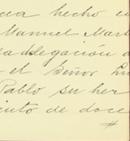 hecho
Manuel Mart
delegación
el Señor
Pablo su her
ento de doce